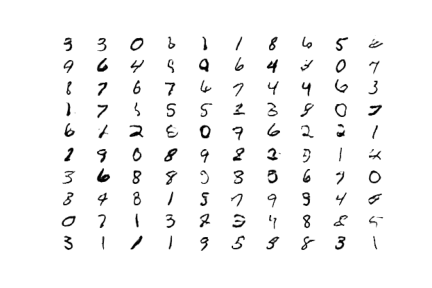 3 3 0 6 1 1 8 6 5
9 6 4 9 6 4 0 7
8 7 6 7 6 7 4 4 6 3
1 7 5 5 5 1 3 8 0 7
6 7 2 8 0 7 6 2 2 1
2 9 0 8 9 2 2 3 1
3 6 8 8 3 3 5 6 7 0
8 4 8 1 5 7 9 9 4 8
0 7 1 3 7 3 4 8 8 5
3 1 1 1 9 5 8 8 3 1